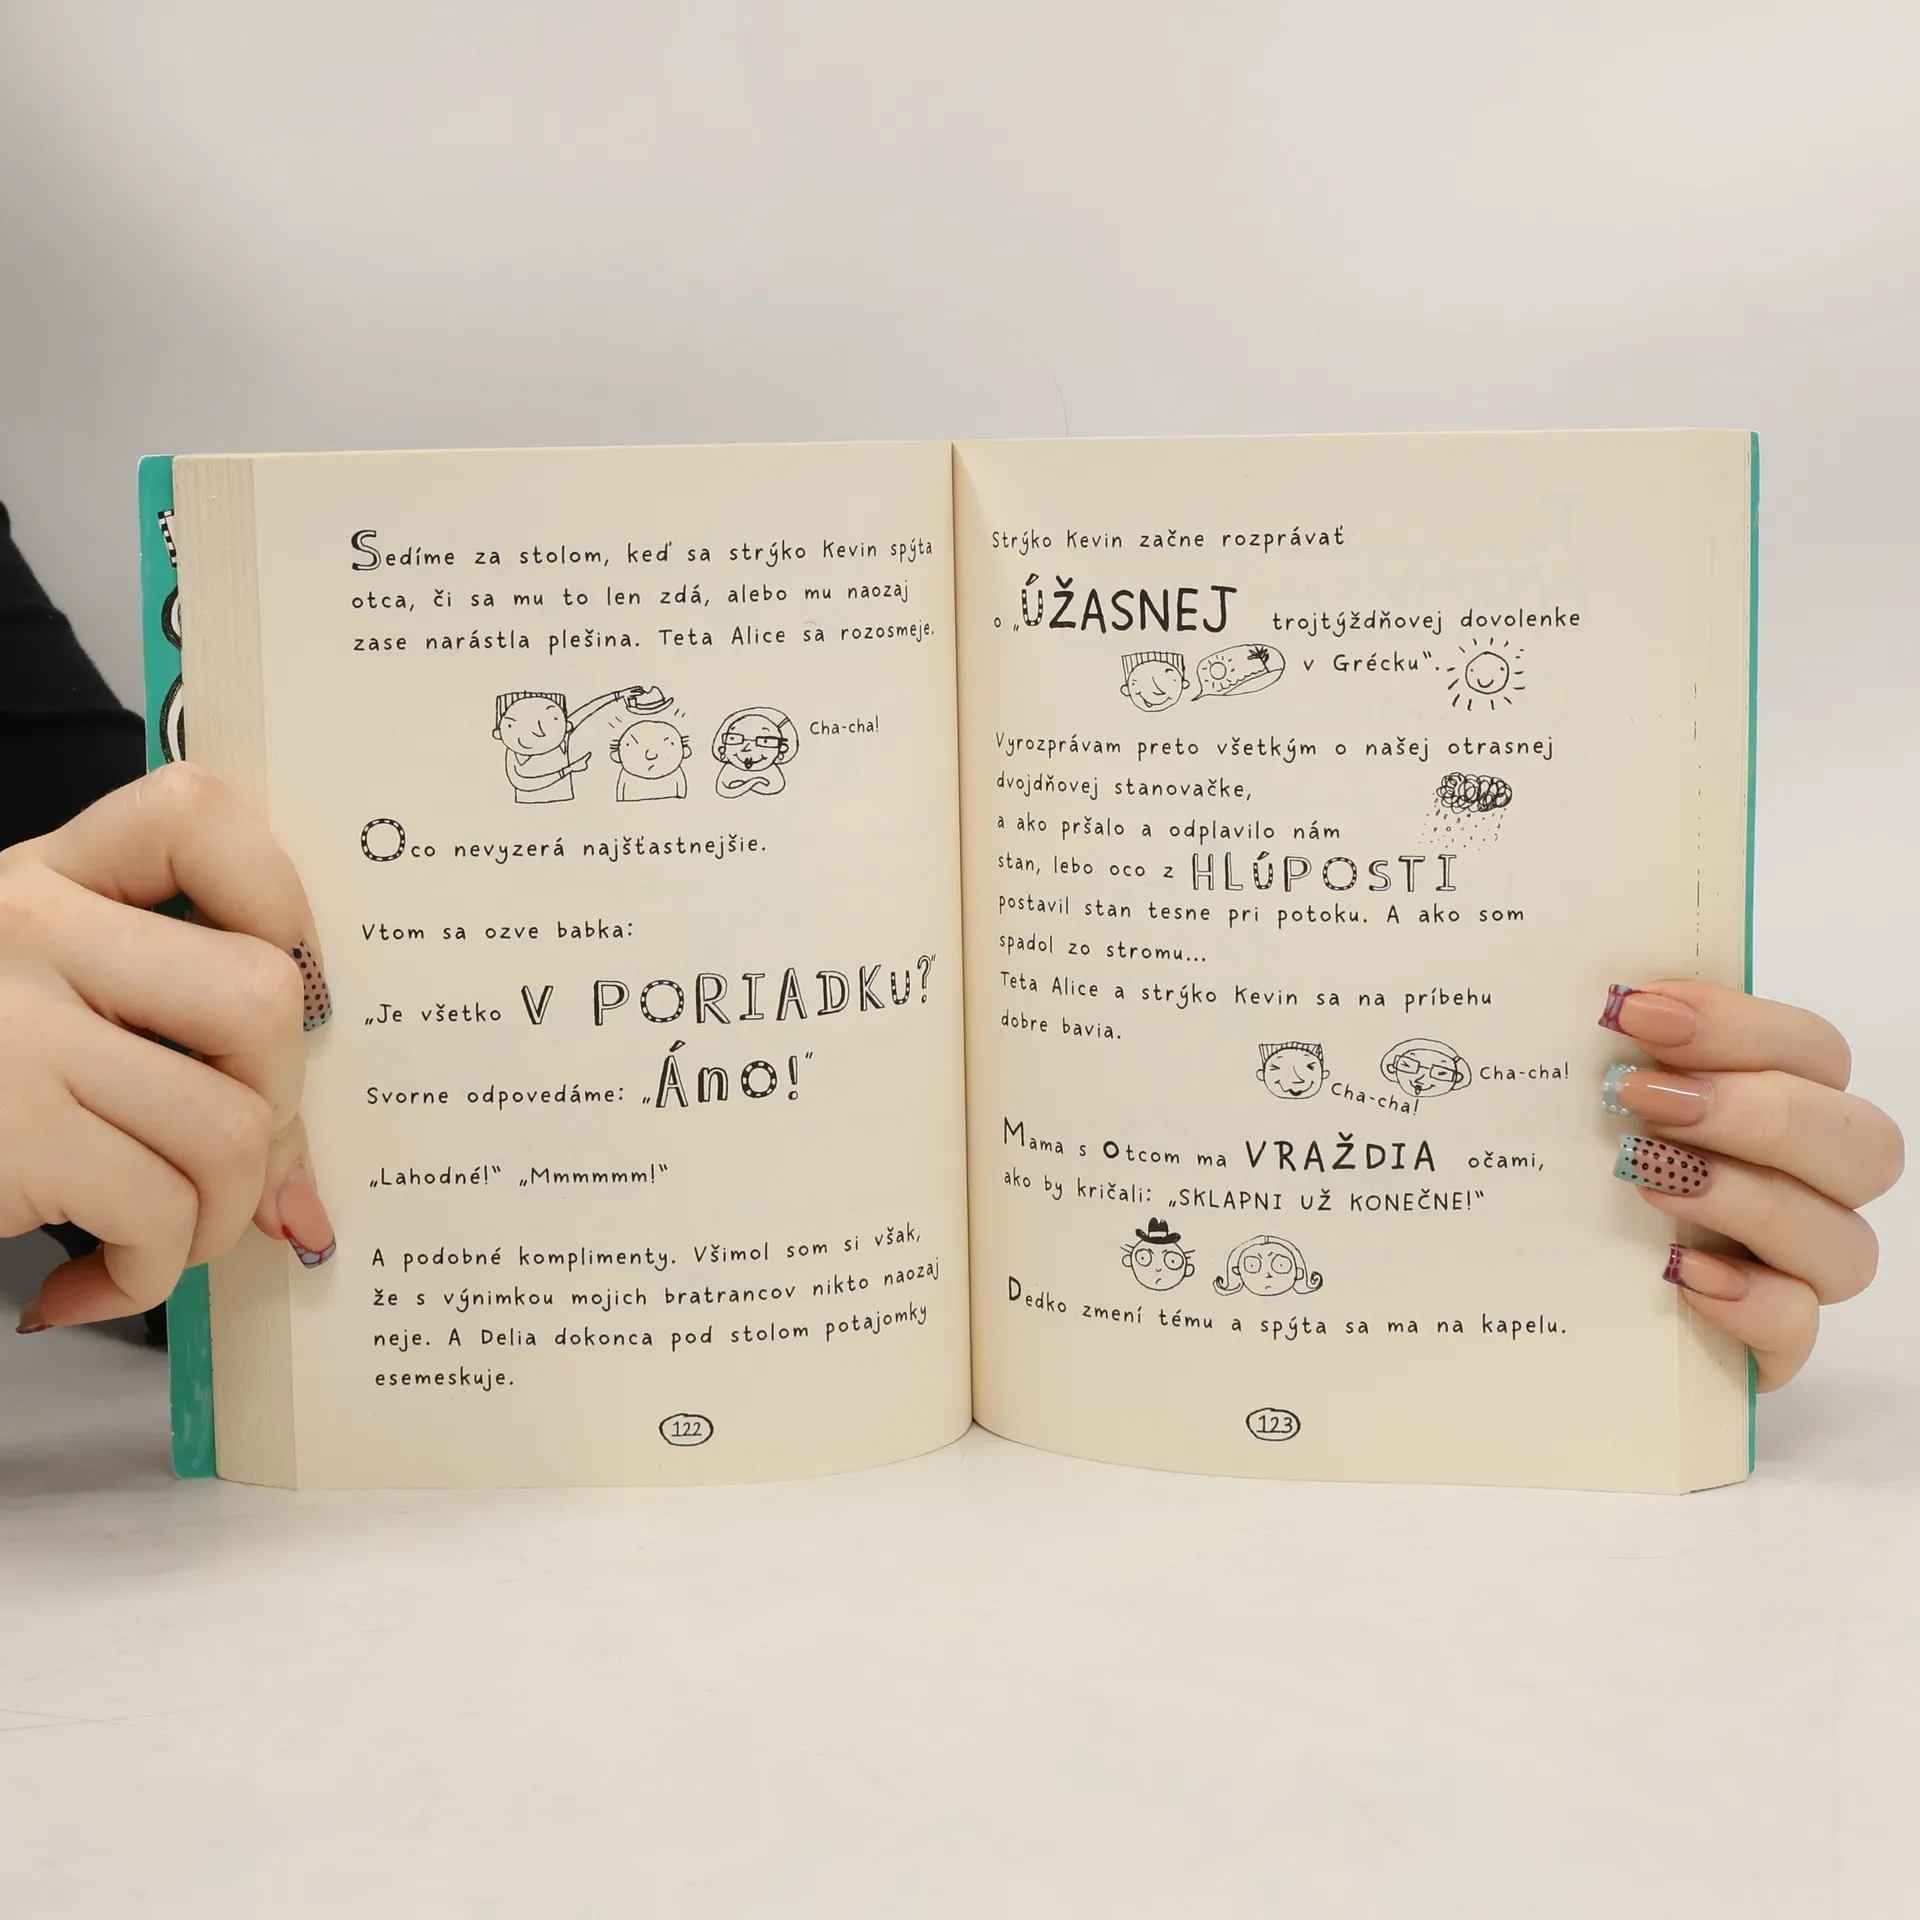 Sedíme za stolom, keď sa strýko Kevin spýta
otca, či sa mu to len zdá, alebo mu naozaj
zase narástla plešina. Teta Alice sa rozosmeje.
Cha-cha!
Oco nevyzerá najšťastnejšie.
Vtom sa ozve babka:
„Je všetko V PORIADKU?"
Svorne odpovedáme: „Áno!"
„Lahodné!“ „Mmmmmm!“
A podobné komplimenty. Všimol som si však,
že s výnimkou mojich bratrancov nikto naozaj
neje. A Delia dokonca pod stolom potajomky
esemeskuje.
122
Strýko Kevin začne rozprávať
o „ÚŽASNEJ trojtýždňovej dovolenke
v Grécku“.
Vyrozprávam preto všetkým o našej otrasnej
dvojdňovej stanovačke,
a ako pršalo a odplavilo nám
stan, lebo oco z HLÚPOSTI
postavil stan tesne pri potoku. A ako som
spadol zo stromu...
Teta Alice a strýko Kevin sa na príbehu
dobre bavia.
Cha-cha! Cha-cha!
Mama s otcom ma VRAŽDIA očami,
ako by kričali: „SKLAPNI UŽ KONEČNE!“
Dedko zmení tému a spýta sa ma na kapelu.
123